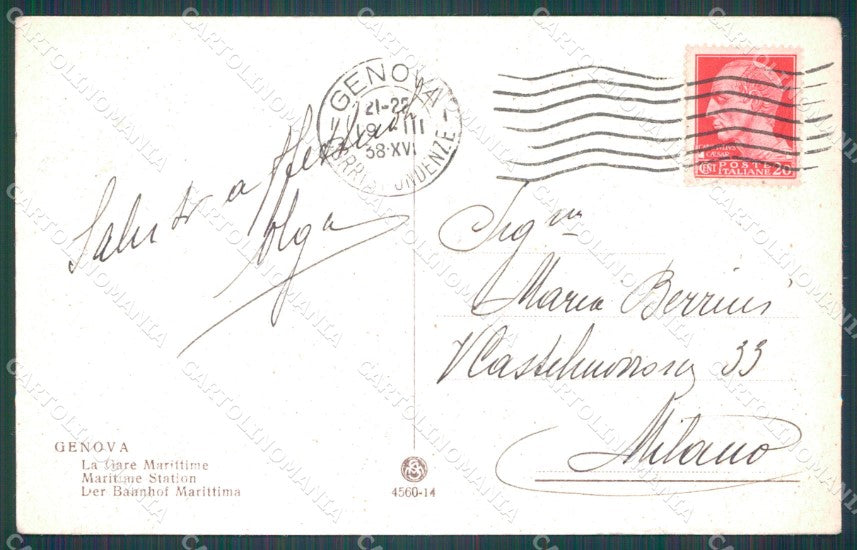 GENOVA
21-22
III
38·XVI
CORRISPONDENZE
CAESAR
POSTE
CENT ITALIANE 20
Saluti aff
Olga
Sig.na
Maria
V Castelmorrone 33
Milano
GENOVA
La Gare Marittime
Maritime Station
Der Bahnhof Marittima
4560-14
CARTOLINOMANIA